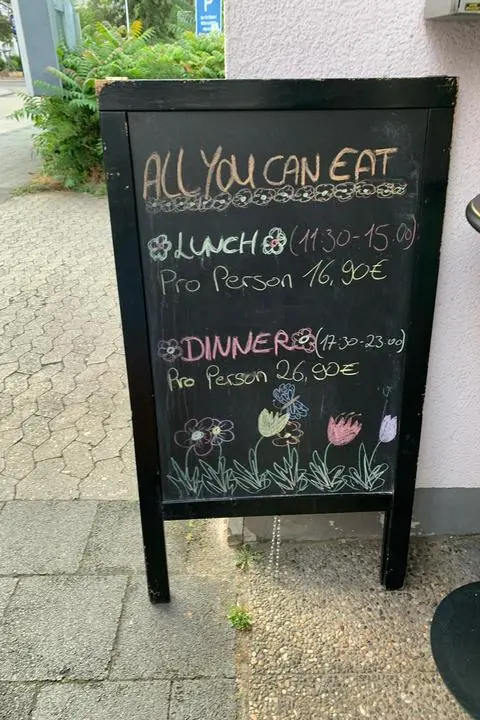 P
ALL YOU CAN EAT
LUNCH (11:30-15.00)
Pro Person 16,90€
DINNER (17:30-23.00)
Pro Person 26,90€